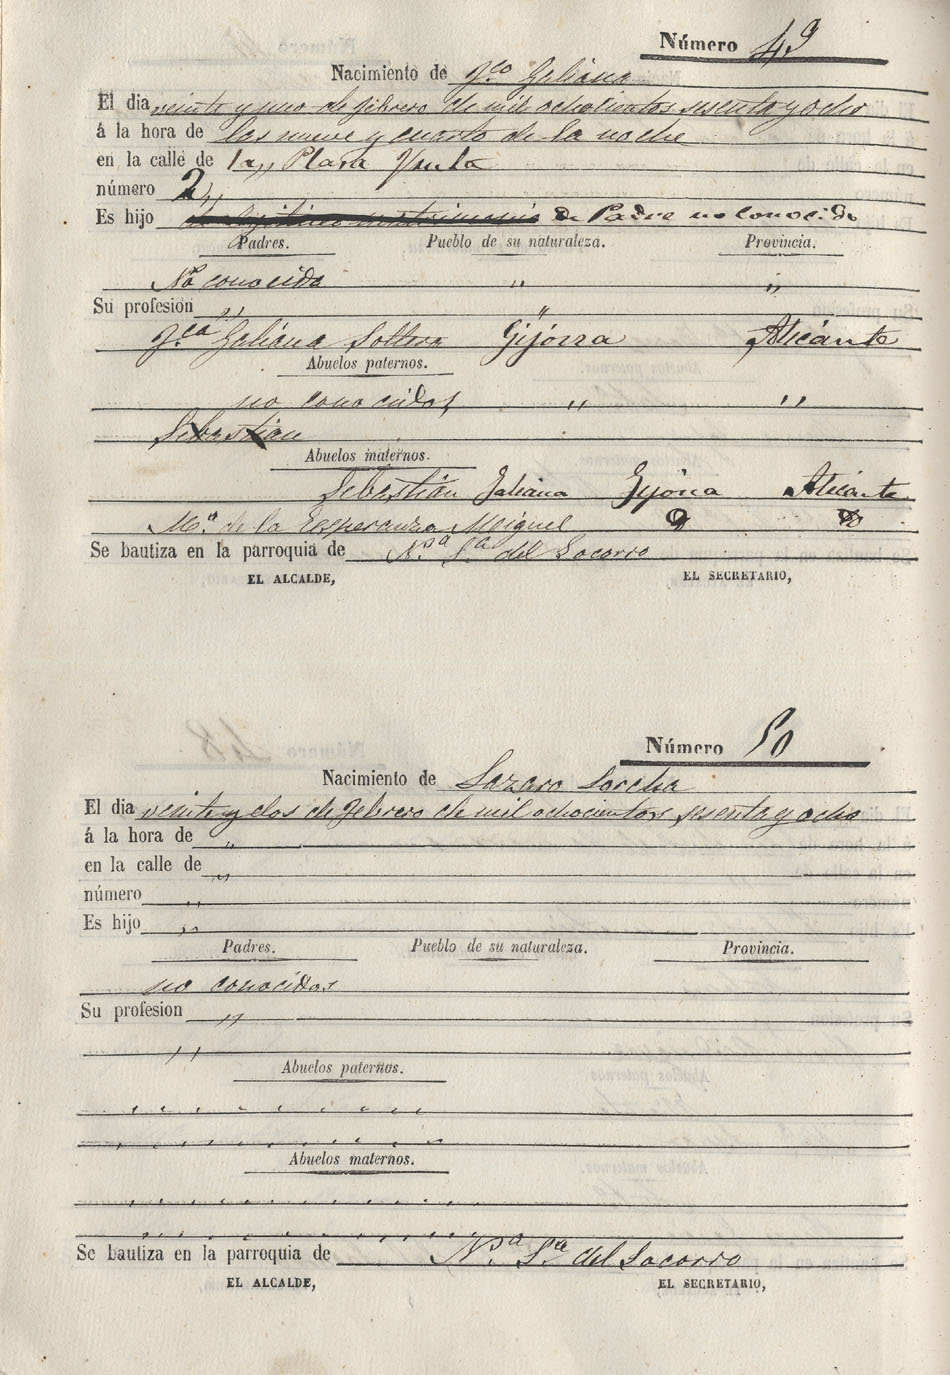 Número 49
Nacimiento de Fco Galiana
El dia veinte y uno de febrero de mil ochocientos sesenta y ocho
á la hora de las nueve y cuarto de la noche
en la calle de la,, Plaza
número 2,,
Es hijo de legitimo matrimonio de Padre no conocido
Padres. Pueblo de su naturaleza. Provincia.
No conocido ,, ,,
Su profesión ,, ,,
Fca Galiana Soltera Gijona Alicante
Abuelos paternos.
no conocidos ,, ,,
Sebastian
Abuelos maternos.
Sebastián Galiana Gijona Alicante
Ma de la Esperanza Miguel
Se bautiza en la parroquia de Nsa Sa del Socorro
EL ALCALDE, EL SECRETARIO,
Número 50
Nacimiento de Lazaro Lorcha
El dia veinte y dos de febrero de mil ochocientos sesenta y ocho
á la hora de ,,
en la calle de ,,
número ,,
Es hijo ,,
Padres. Pueblo de su naturaleza. Provincia.
no conocidos
Su profesion ,,
,,
Abuelos paternos.
Abuelos maternos.
Se bautiza en la parroquia de Nsa Sa del Socorro
EL ALCALDE, EL SECRETARIO,